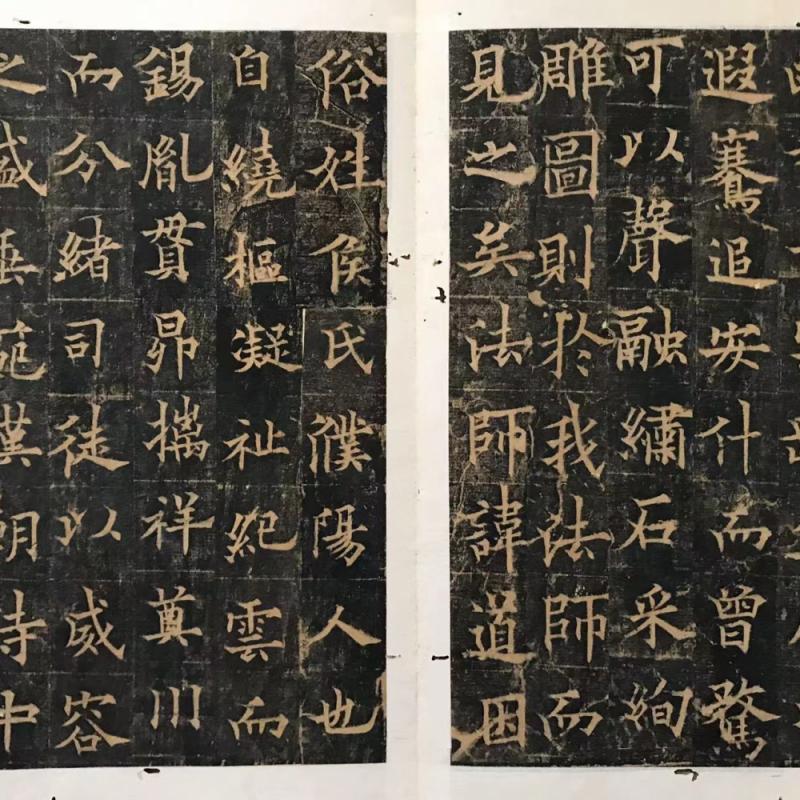 遐鶱追安什而曾騖
可以聲融繡石采絢
雕圖則於我法師而
見之矣法師諱道因
俗姓侯氏濮陽人也
自繞樞凝祉紀雲而
錫胤貫昴摛祥奠川
而分緒司徒以威容
之盛垂范漢朝侍中